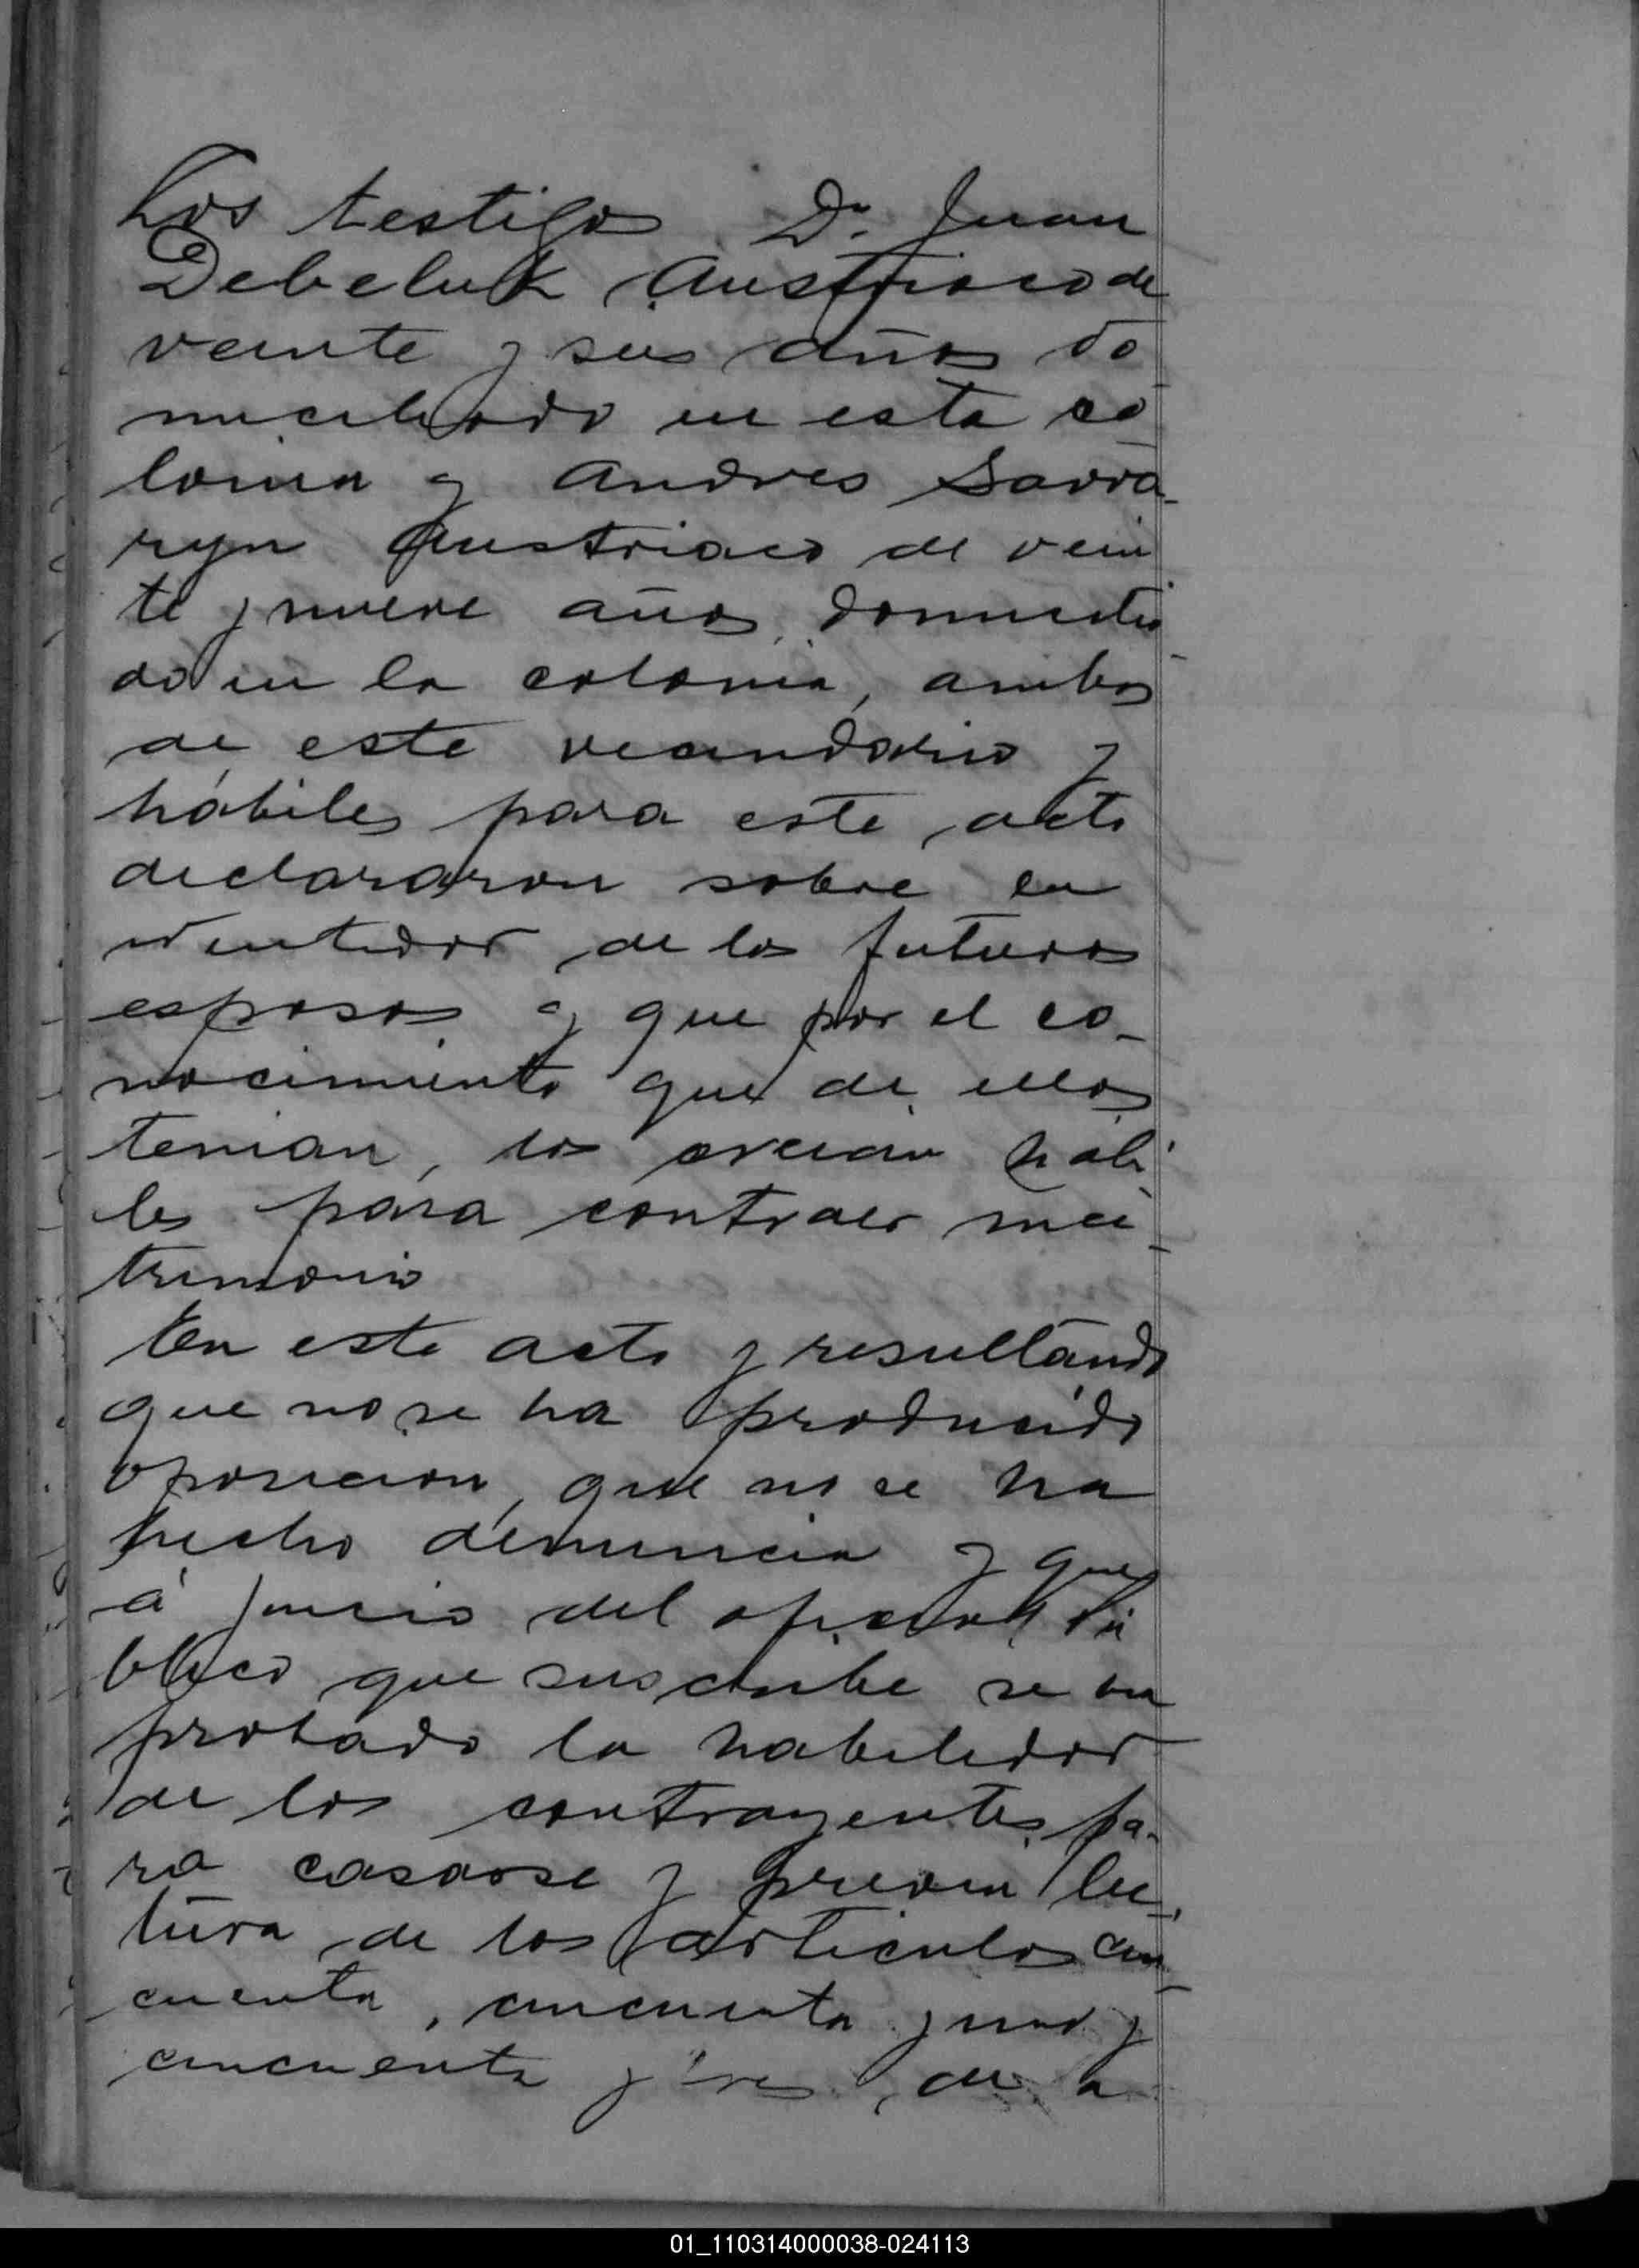 Los testigos Dn. Juan
Debeluk Austriaco de
veinte y seis años do
miciliado en esta co
lonia y Andres Savva-
ryn Austriaco de vein
te y nueve años, domicilia
do en la colonia, ambos
de este vecindario y
hábiles para este acto
declararon sobre la
identidad de los futuros
esposos y que por el co-
nocimiento que de ellos
tenian, los creian hábi
les para contraer ma-
trimonio
En este acto y resultando
que no se ha producido
oposicion, que no se ha
hecho denuncia y que
á juicio del oficial Pú
blico que suscribe se ha
probado la habilidad
de los contrayentes pa-
ra casarse y previa lec-
tura de los articulos cin-
cuenta, cincuenta y uno y
cincuenta y tres, de la
01_110314000038-024113